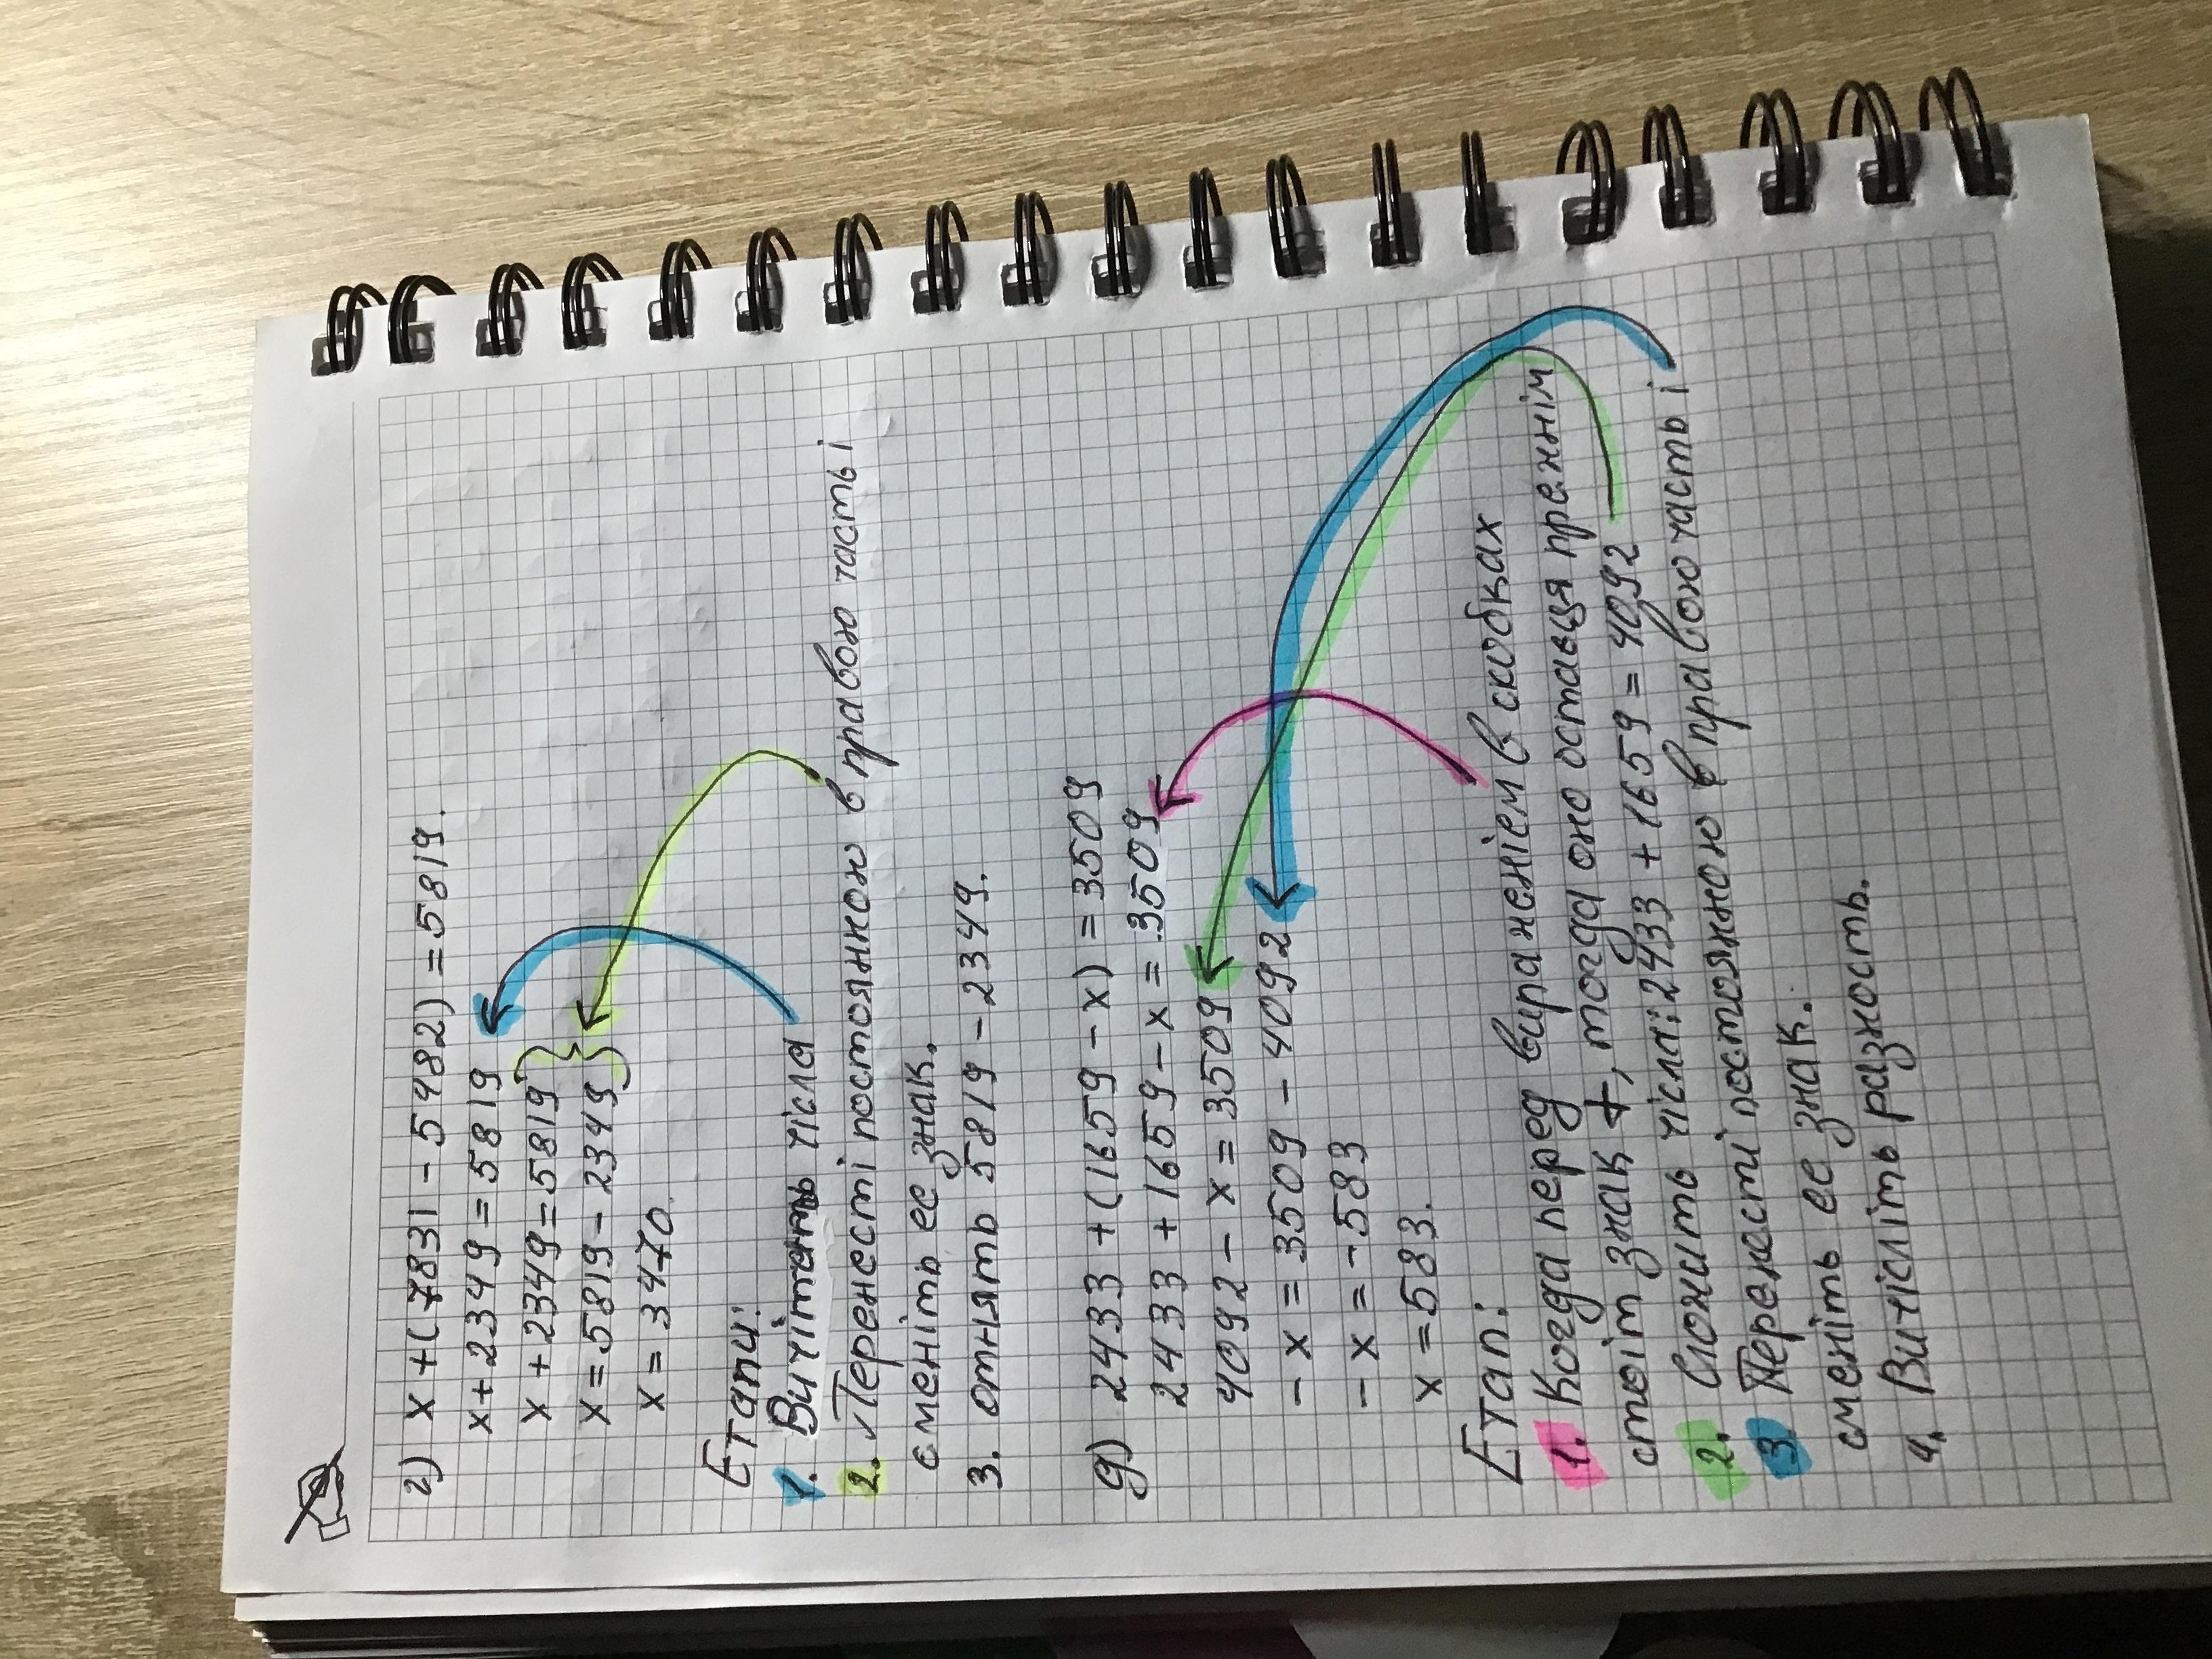 г) x+(7831-5482)=5819.
x+2349=5819
x+2349=5819
x=5819-2349
x=3470.
Етапи:
1. Вичітать чісла
2. Перенесті постоянною в правою часть і
сменіть ее знак.
3. отнять 5819-2349.
д) 2433+(1659-x)=3509
2433+1659-x=3509
4092-x=3509
-x=3509-4092
-x=-583
x=583.
Етап:
1. Когда перед вираженієм в скобках
стоіт знак +, тогда оно оставця прежнім
2. Сложить чісла: 2433+1659=4092
3. Перенесті постоянною в правою часть і
сменіть ее знак.
4. Вичісліть разность.